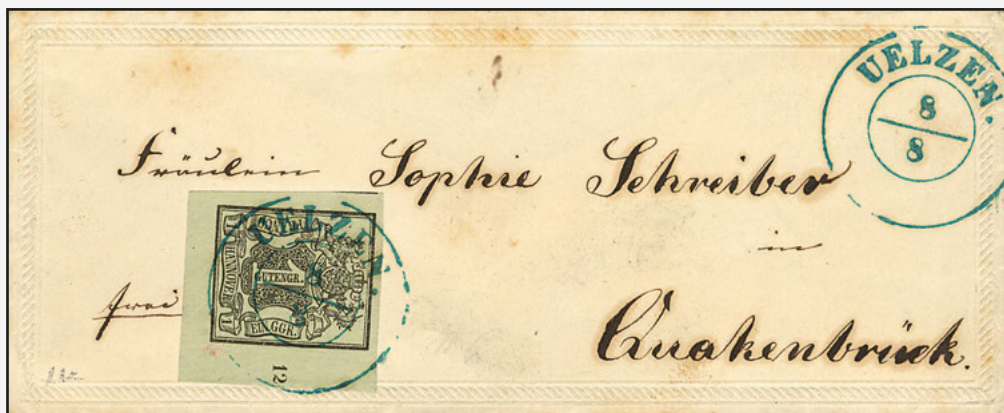 UELZEN.
8
8
Fräulein Sophie Schreiber
in
Quakenbrück.
frei
UELZEN.
8
8
HANNOVER
GUTENGR.
EIN GGR.
1
1
12